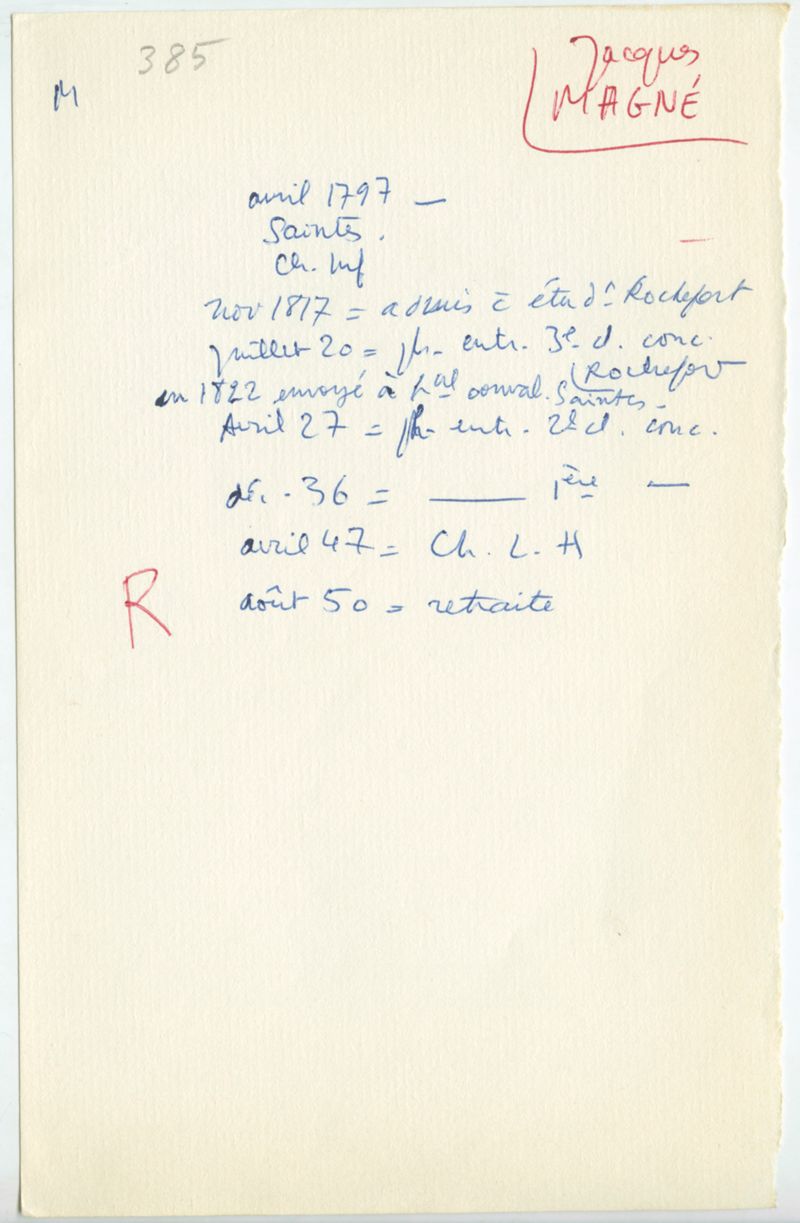 385
M
Jacques
MAGNÉ
avril 1797 —
Saintes.
Ch. Inf
nov 1817 = admis à étud. Rochefort
juillet 20 = ph. entr. 3e cl. conc.
(Rochefort
en 1822 envoyé à hal conval. Saintes –
Avril 27 = ph. entr. 2e cl. conc.
déc. 36 = —— 1ère —
avril 47 = Ch. L. H
R
août 50 = retraite